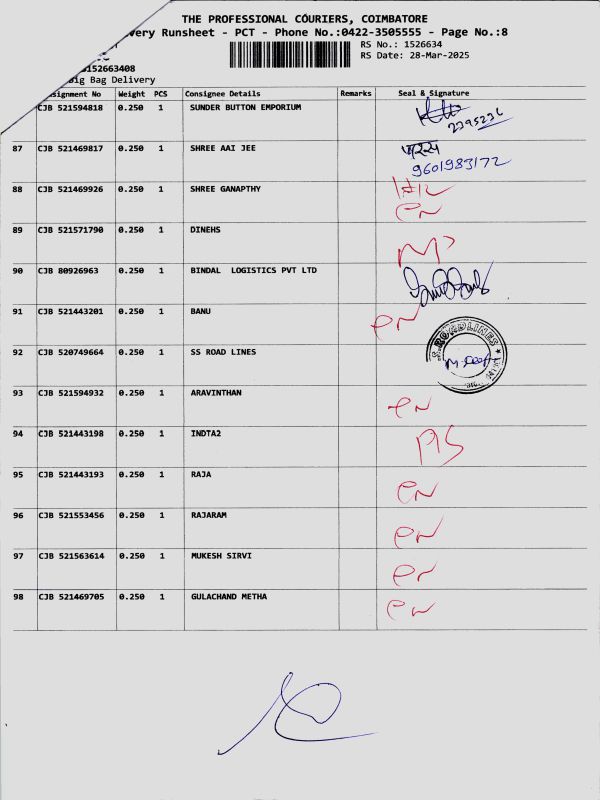 THE PROFESSIONAL COURIERS, COIMBATORE
very Runsheet - PCT - Phone No.:0422-3505555 - Page No.:8
RS No.: 1526634
RS Date: 28-Mar-2025
152663408
Big Bag Delivery
signment No Weight PCS Consignee Details Remarks Seal & Signature
CJB 521594818 0.250 1 SUNDER BUTTON EMPORIUM
2395236
87 CJB 521469817 0.250 1 SHREE AAI JEE
9601983172
88 CJB 521469926 0.250 1 SHREE GANAPTHY
89 CJB 521571790 0.250 1 DINEHS
90 CJB 80926963 0.250 1 BINDAL LOGISTICS PVT LTD
91 CJB 521443201 0.250 1 BANU
92 CJB 520749664 0.250 1 SS ROAD LINES
ROADLINES
93 CJB 521594932 0.250 1 ARAVINTHAN
94 CJB 521443198 0.250 1 INDTA2
95 CJB 521443193 0.250 1 RAJA
96 CJB 521553456 0.250 1 RAJARAM
97 CJB 521563614 0.250 1 MUKESH SIRVI
98 CJB 521469705 0.250 1 GULACHAND METHA